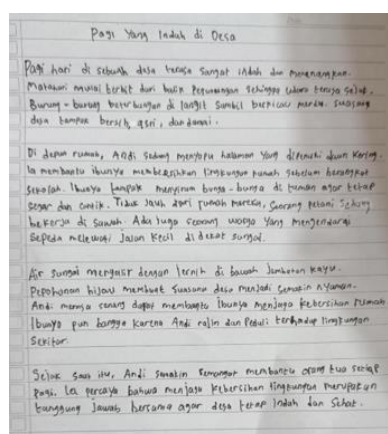 Pagi Yang Indah di Desa
Pagi hari di sebuah desa terasa sangat indah dan menenangkan.
Matahari mulai terbit dari balik Pegunungan sehingga udara terasa sejuk.
Burung-burung beterbangan di langit sambil berkicau merdu. Suasana
desa tampak bersih, asri, dan damai.
Di depan rumah, Andi sedang menyapu halaman yang dipenuhi daun kering.
Ia membantu ibunya membersihkan lingkungan rumah sebelum berangkat
sekolah. Ibunya tampak menyiram bunga-bunga di taman agar tetap
segar dan cantik. Tidak jauh dari rumah mereka, seorang petani sedang
bekerja di sawah. Ada juga seorang warga yang mengendarai
sepeda melewati jalan kecil di dekat sungai.
Air sungai mengalir dengan jernih di bawah jembatan kayu.
Pepohonan hijau membuat suasana desa menjadi semakin nyaman.
Andi merasa senang dapat membantu ibunya menjaga kebersihan rumah
Ibunya pun bangga karena Andi rajin dan peduli terhadap lingkungan
Sekitar.
Sejak saat itu, Andi semakin semangat membantu orang tua setiap
pagi. Ia percaya bahwa menjaga kebersihan lingkungan merupakan
tanggung jawab bersama agar desa tetap indah dan sehat.